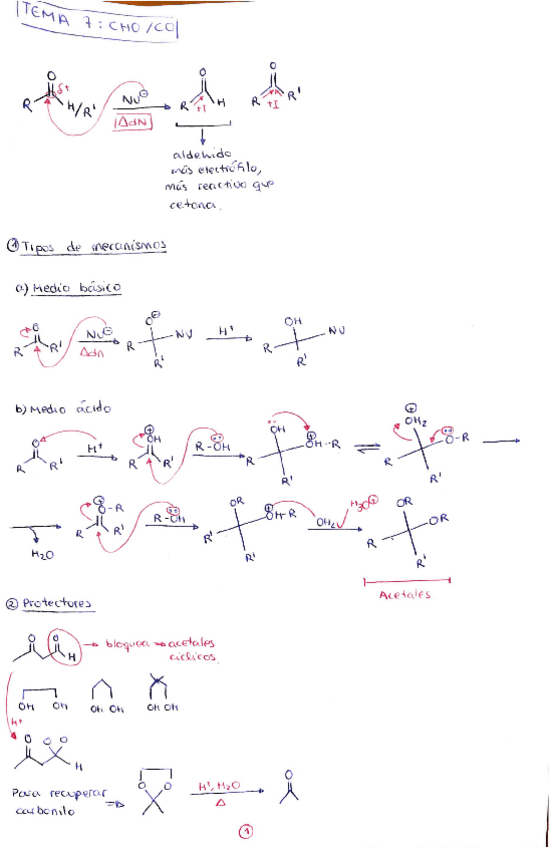 TEMA 7: CHO/CO
O
δ+
R
H/R'
Nu⊖
AdN
O
R
+I
H
O
R
+I
R'
aldehido
más electrófilo,
más reactivo que
cetona.
① Tipos de mecanismos
a) Medio básico
O
R
R'
Nu⊖
Adn
O⊖
R
NU
R'
H⁺
OH
R
NU
R'
b) Medio ácido
O
R
R'
H⁺
⊕OH
R
R'
R-OH
OH
R
⊕OH-R
R'
⇌
⊕OH₂
R
O-R
R'
H₂O
⊕O-R
R
R'
R-OH
OR
R'
⊕OH-R
R'
OH₂
H₃O⊕
OR
R
OR
R'
Acetales
② Protectores
O
O
H
bloquea → acetales
cíclicos.
OH OH
OH OH
OH OH
H⁺
O
O O
H
Para recuperar
carbonilo
⇒
O O
H⁺, H₂O
Δ
O
1